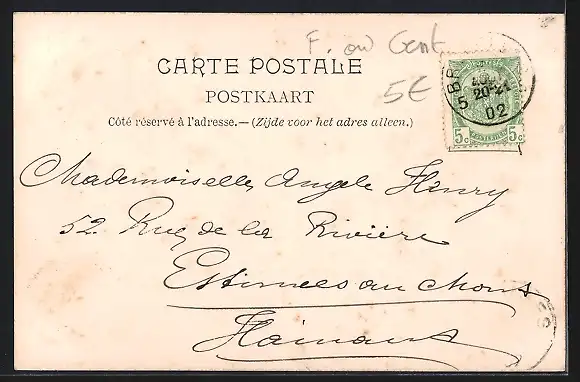 F. ou Gent
CARTE POSTALE
POSTKAART
5€
Côté réservé à l'adresse.—(Zijde voor het adres alleen.)
5 BR
20-21
02
5c 5c
Mademoiselle Angele Henry
52 Rue de la Rivière
Estinnes au Mont
Hainaut